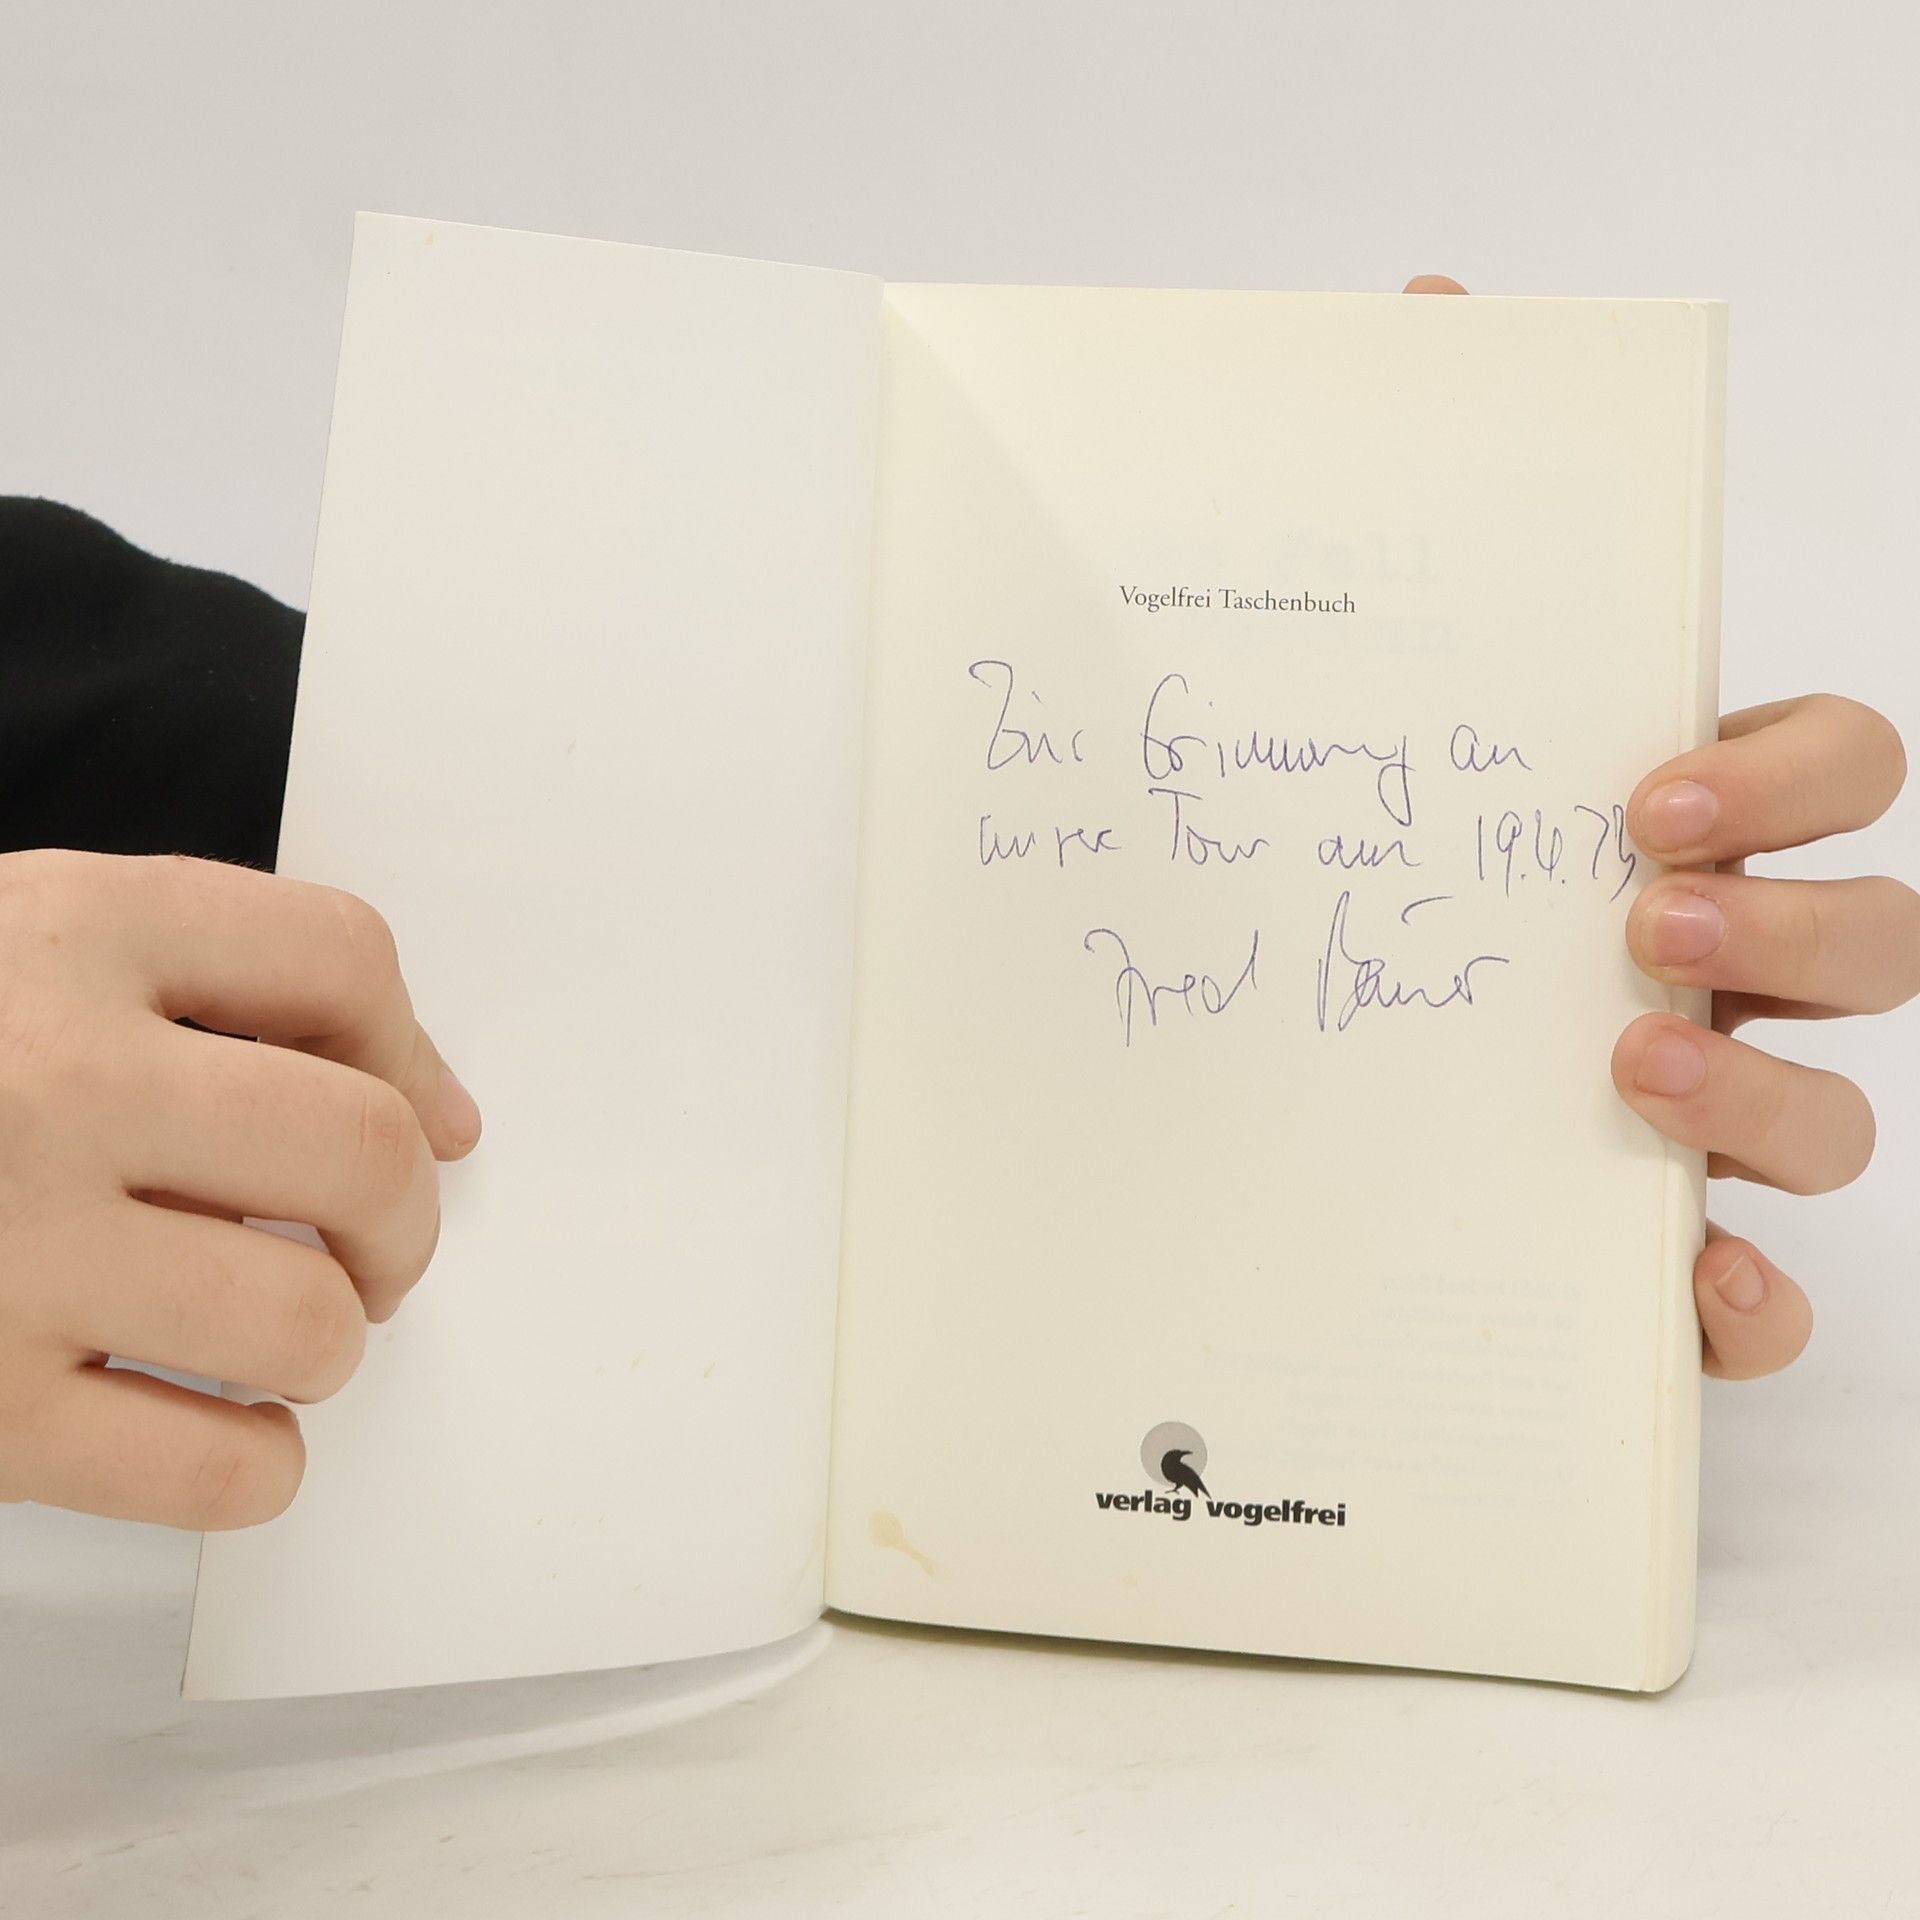 Vogelfrei Taschenbuch
Zur Erinnerung an
unsere Tour am
Fred Bauer
verlag vogelfrei